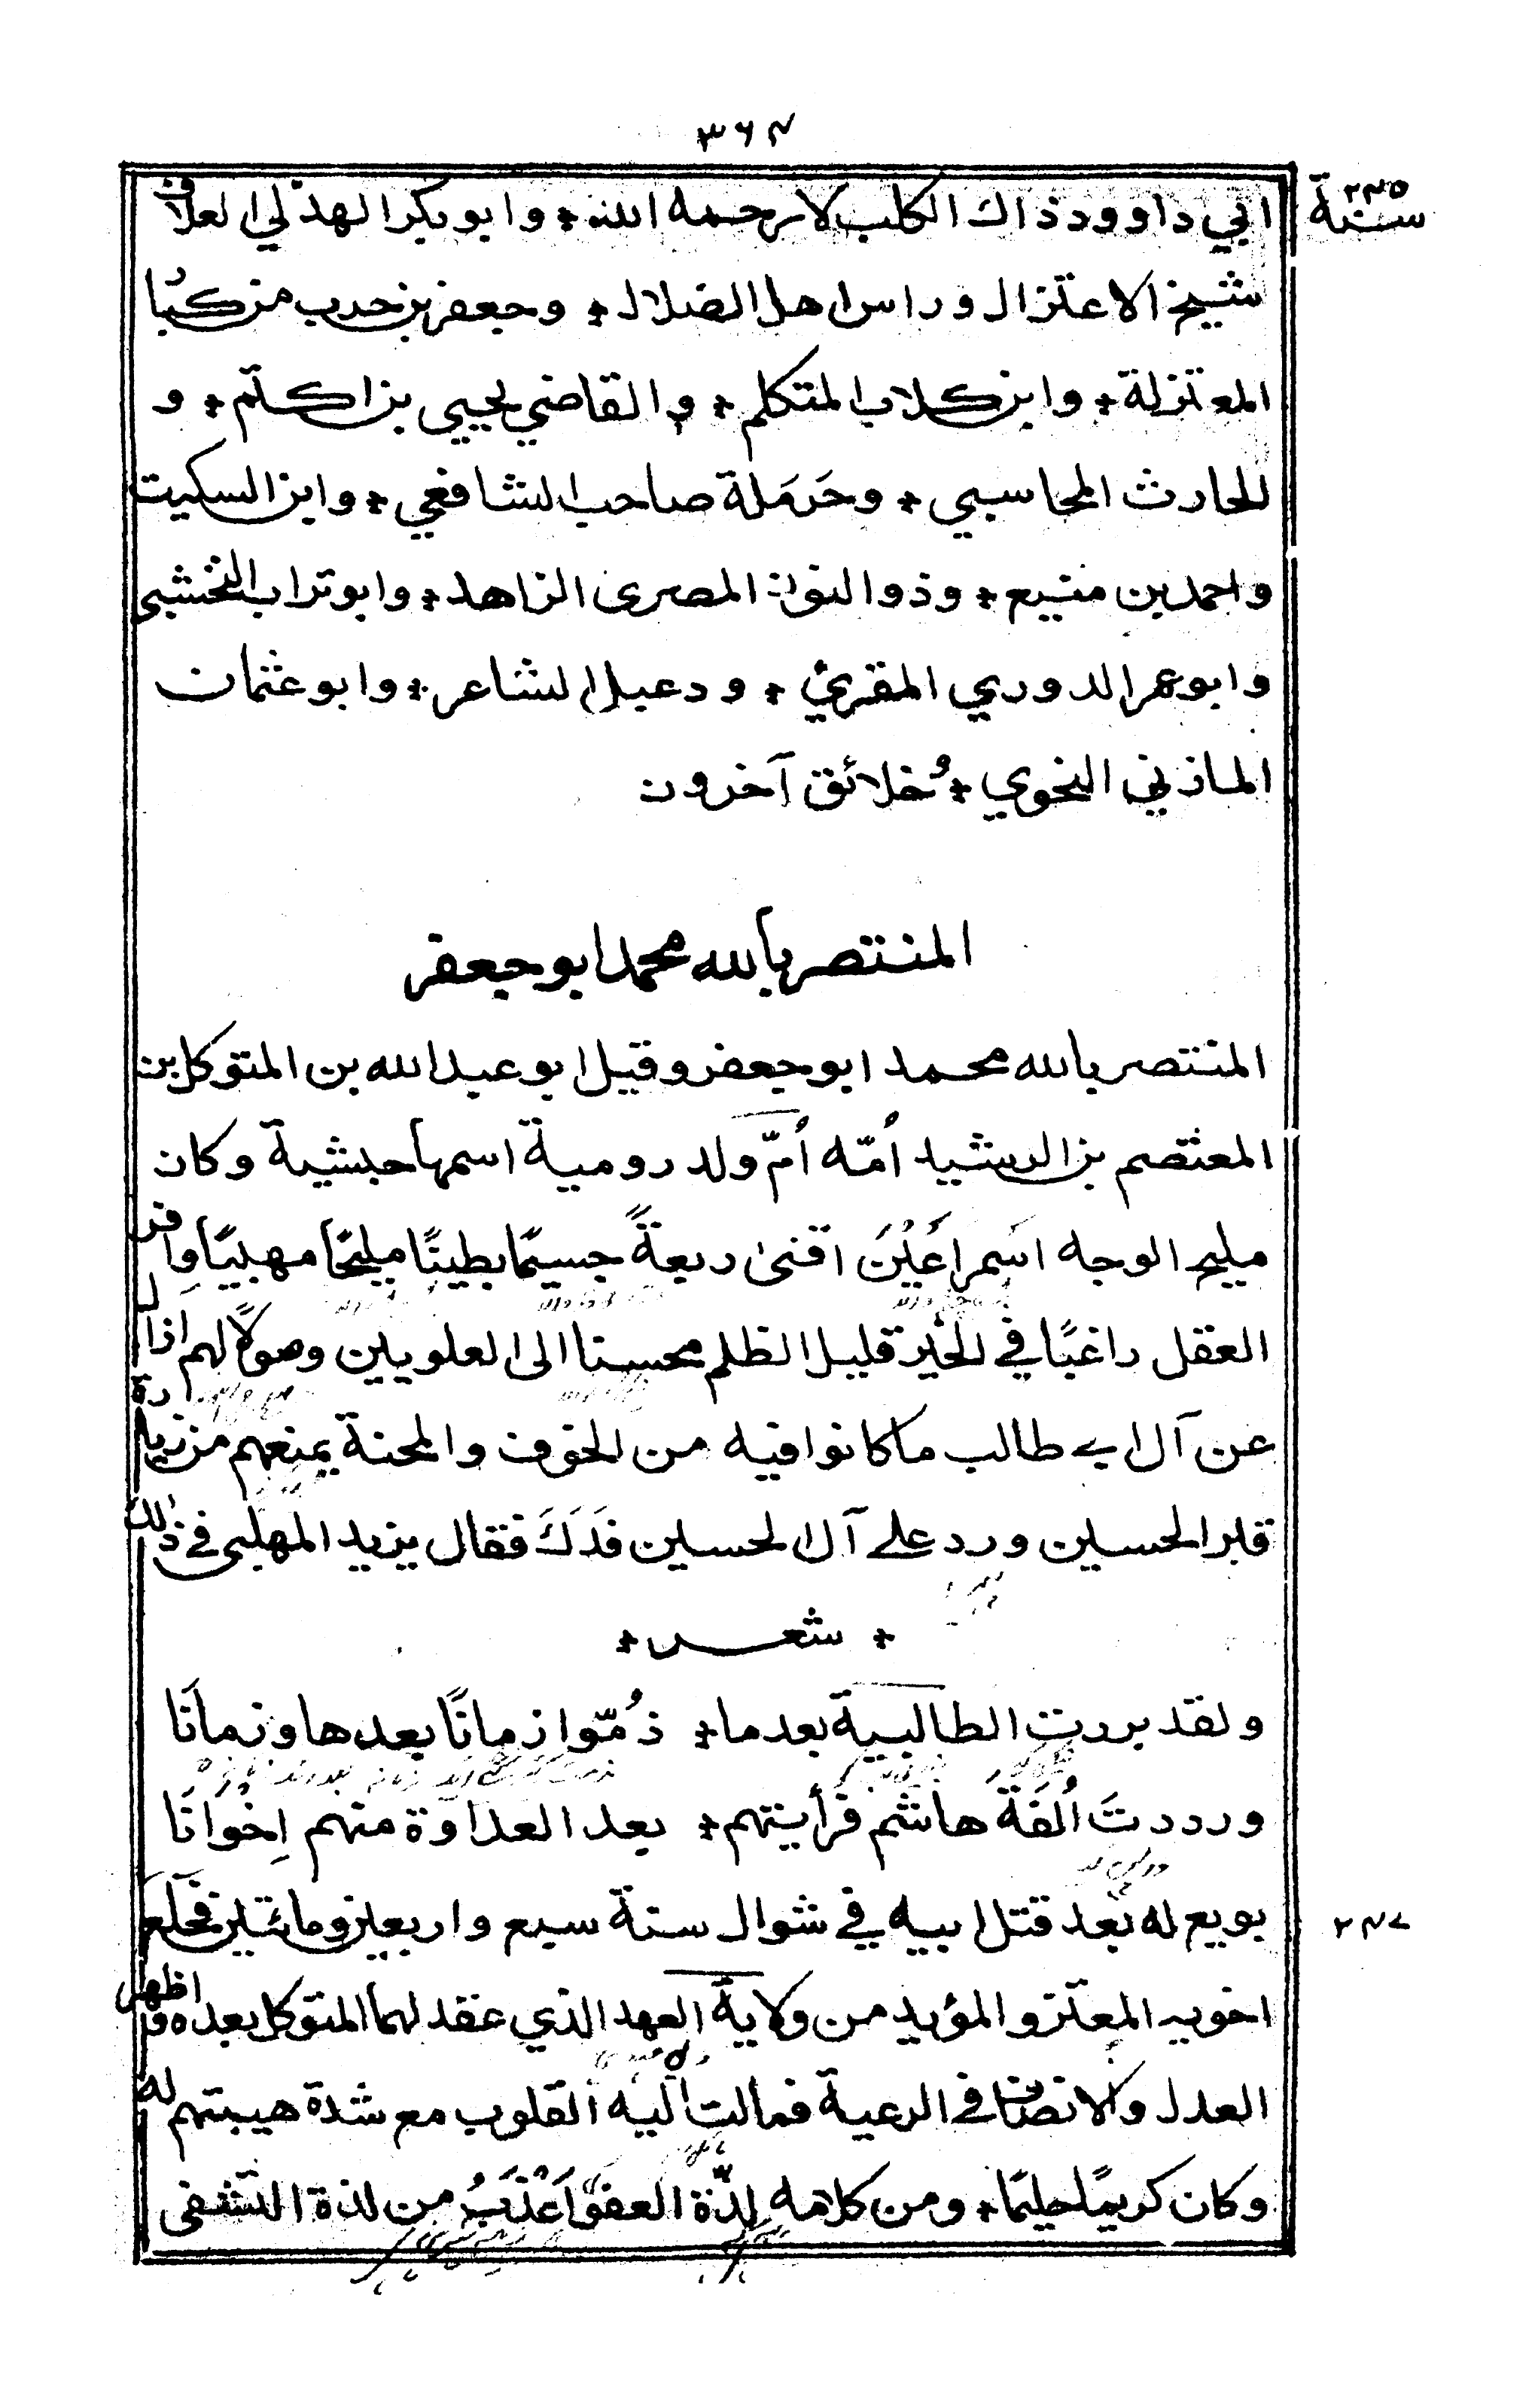 ٣٦٤
سنة ٢٣٥
ابي داوود ذاك الكلب لا رحمه الله * وابو بكر الهذلي العلاف
شيخ الاعتزال وراس اهل الضلال * وجعفر بن حرب من كبُا
المعتزلة * وابن كلاب المتكلم * والقاضي يحيى بن اكثم * و
الحارث المحاسبي * وحَرمَلة صاحب الشافعي * وابن السكيت
واحمد بن منيع * وذو النون المصرى الزاهد * وابو تراب النخشبى
وابو عمر الدوري المقرئ * ودعبل الشاعر * وابو عثمان
المازني النحوي * وخلائق آخرون
المنتصر بالله محمد ابو جعفر
المنتصر بالله محمد ابو جعفر وقيل ابو عبد الله بن المتوكل بن
المعتصم بن الرشيد اُمّه اُمّ ولد رومية اسمها حبشية وكان
مليح الوجه اسَمر اَعْيَنَ اقنى ربعةً جسيمًا بطينًا مليحًا مهيبًا وافر
العقل راغبًا في الخير قليل الظلم محسنا الى العلويين وصولًا لهم ازال
عن آل ابي طالب ما كانوا فيه من الخوف والمحنة بمنعهم من زيارة
قبر الحسين ورد على آل الحسين فَدَكَ فقال يزيد المهلبى في ذلك
* شعر *
ولقد بررت الطالبية بعد ما * ذُمّوا زمانًا بعدها وزمانَا
ورددتَ اُلفَةَ هاشم فرأيتهم * بعد العداوة منهم اِخْوَانَا
بويع له بعد قتل ابيه في شوال سنة سبع واربعين ومائتين فخلع
٢٤٧
اخويه المعتز والمؤيد من ولاية العهد الذي عقد لهما المتوكل بعده واظهر
العدل والانصاف في الرعية فمالت اليه القلوب مع شدة هيبتهم له
وكان كريمًا حليمًا * ومن كلامه لذّة العفو اَعْذَبُ من لذة التشفى